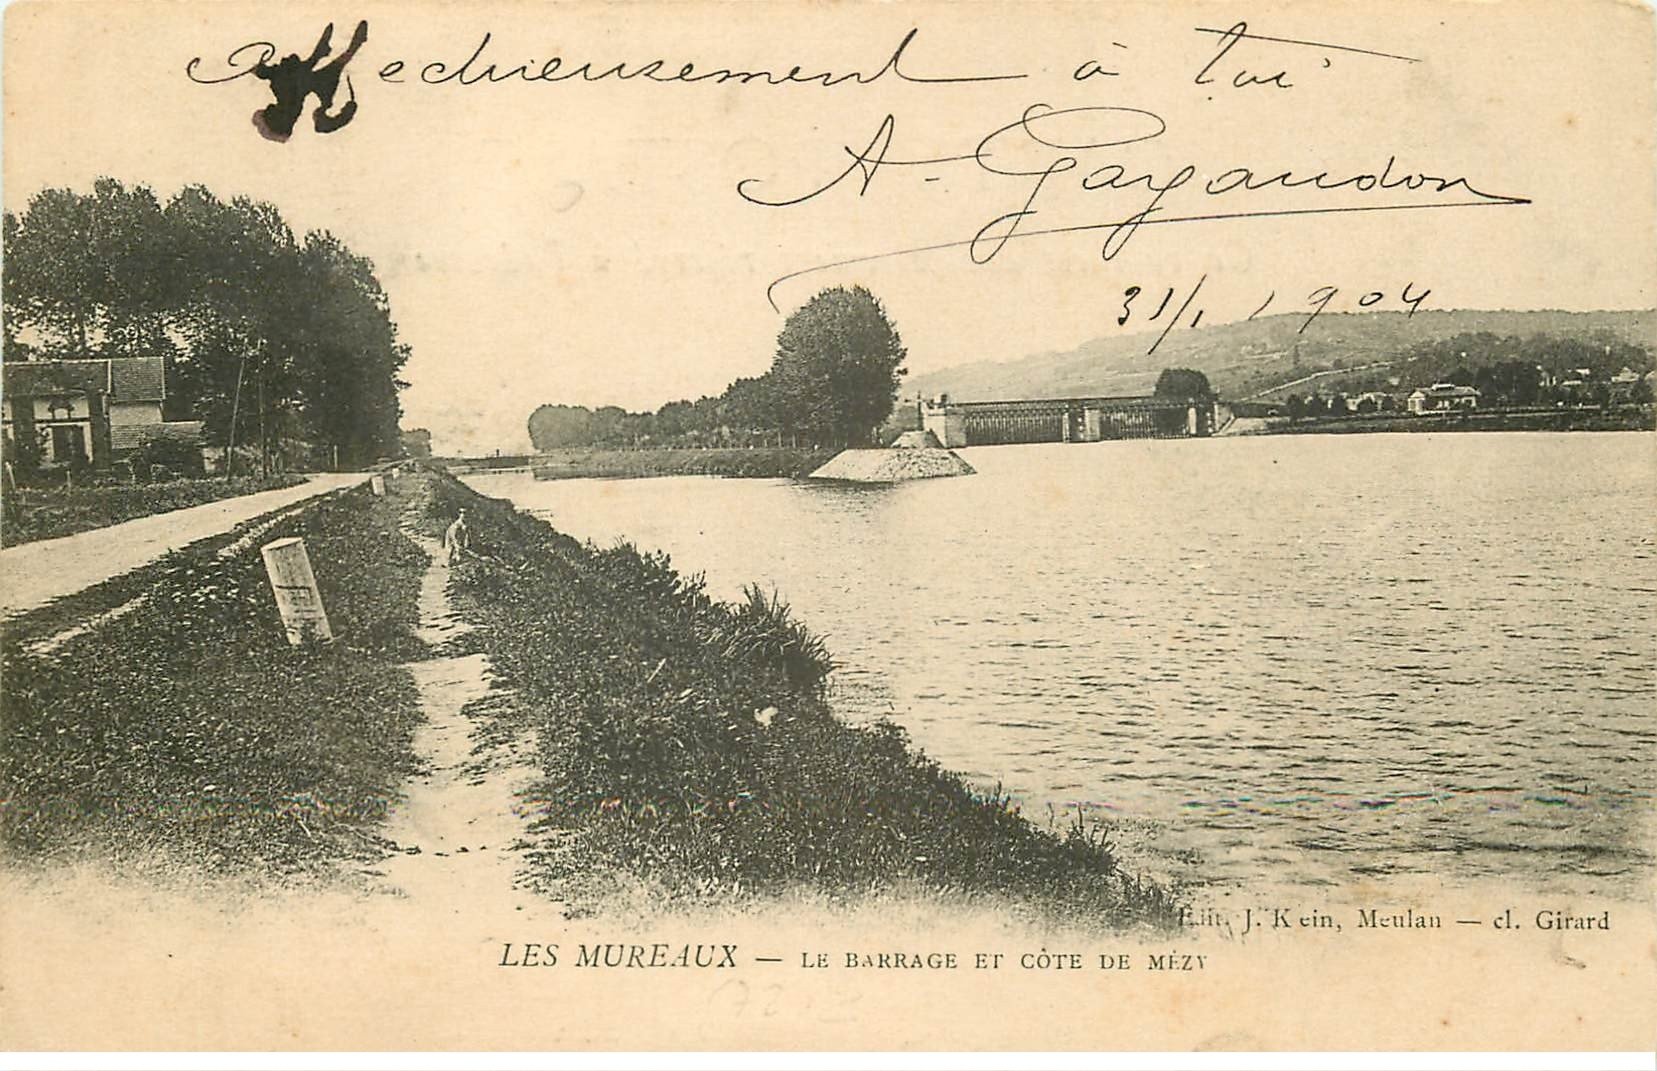 Affectueusement à toi
A. Gagandon
31/1 1904
Edit. J. Kein, Meulan — cl. Girard
LES MUREAUX — LE BARRAGE ET CÔTE DE MÉZY